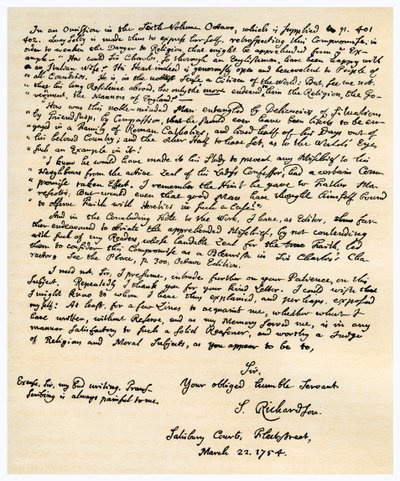 In an Omission in the Sixth Volume Octavo, which is supplied p. 401
402. Lucy Selby is made thus to express herself, respecting this Compromise, in
order to weaken the Danger to Religion, that might be apprehended from the Ex-
ample. "How could Sir Charles, so thorough an Englishman, have been happy with
an Italian Wife? His Heart indeed is generously open and benevolent to People of
all Countries. He is in the noblest Sense a Citizen of the World: But, see we not,
that his long Residence abroad, has only the more endeared him the Religion, the Go-
vernment, the Manners of England?
"How was this noble-minded Man entangled by Delicacies of Situation,
by Friendship, by Compassion, that he should ever have been likely to be en-
gaged in a Family of Roman Catholics, and lived half of his Days out of
his beloved Country; and the other Half to have set, as to the World's Eye,
such an Example in it!
"I know he would have made it his Study to prevent any Mischief to his
Neighbours from the active Zeal of his Lady's Confessor, had a certain Com-
promise taken Effect. I remember the Hint he gave to Father Ma-
rescotti: But would even that good Man have thought himself bound
to observe Faith with Heretics in such a Case?"
And in the Concluding Note to the Work, I have, as Editor, fur-
ther endeavoured to obviate the apprehended Mischief, by not contending
with such of my Readers, whose laudable Zeal for the true Faith, led
them to consider this Compromise as a Blemish in Sir Charles's Cha-
racter. See the Place, P. 300, Octavo Edition.
I need not, Sir, I presume, intrude further on your Patience, on this
Subject. Repeatedly I thank you for your kind Letter. I could wish that
I might know to whom I have thus explained, and perhaps, exposed
myself: At least, for a few Lines to acquaint me, whether what I
have written, without Reserve, and as my Memory served me, is in any
manner Satisfactory to such a solid Reasoner, and worthy a Judge
of Religious and Moral Subjects, as you appear to be, to,
Sir,
Your obliged humble Servant
S. Richardson.
Excuse, Sir, my bad writing. Tran-
scribing is always painful to me.
Salisbury Court, Fleetstreet,
March 22. 1754.